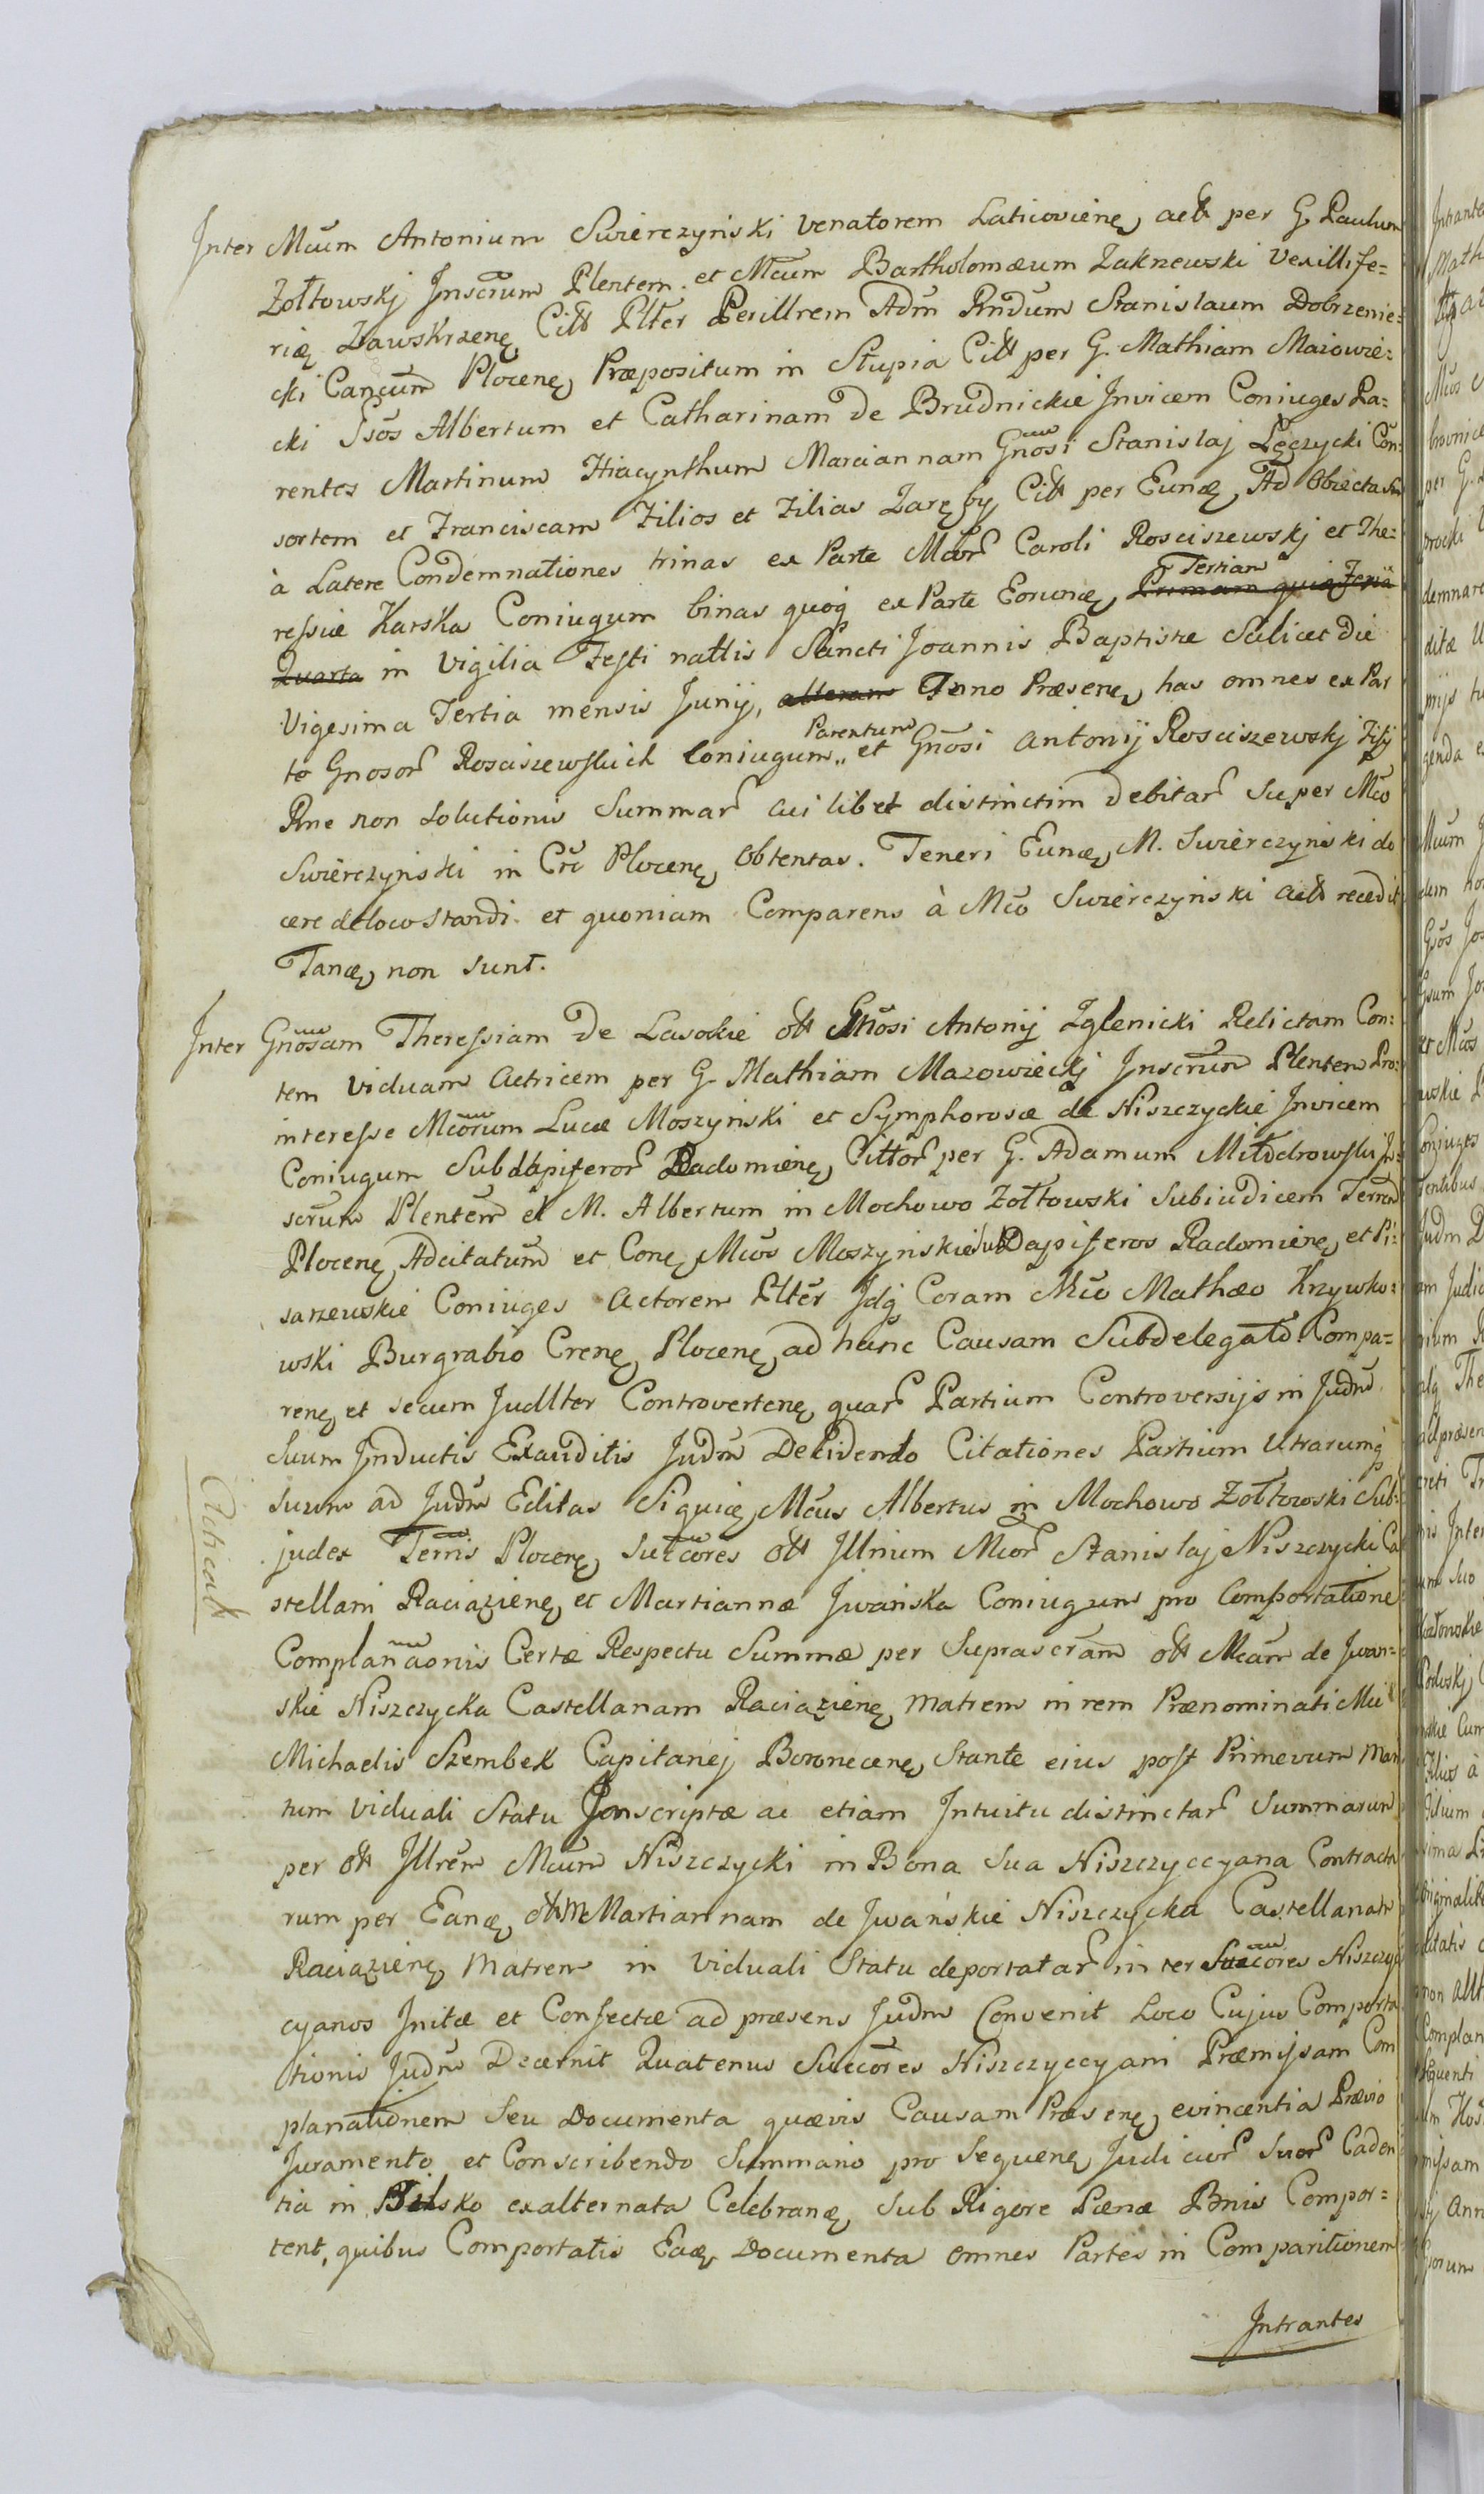 Inter Mcum Antonium Swierczynski Venatorem Laticoviene, act per G. Paulum
Zołtowskj Inscrum Plentem. et Mcum Bartholomæum Zakrzewski Vexillife=
riæ Zawskrzene, Citt Plter Perillrem Adm Rndum Stanislaum Dobrzenie=
cki Cancum Plocene, Præpositum in Słupia Citt per G. Mathiam Mazowie=
cki Gsos Albertum et Catharinam de Brudnickie Invicem Coniuges Pa=
rentes Martinum Hiacynthum Mariannam Gnosi Stanislaj Lęczycki Con=
sortem et Franciscam Filios et Filias Zaręby, Citt per Eunde, Ad Obiectas
à Latere Condemnationes trinas ex Parte Mcor Caroli Rosciszewskj et The=
ressiæ Karska Coniugum binas quoq ex Parte Eorunde, Tertiam Primam quia Feria
Quarta in Vigilia Festi natlis Sancti Joannis Baptistæ Scilicet die
Vigesima Tertia mensis Junij, alteram Anno Præsene, has omnes ex Par
te Gnosor Rosciszewskich Coniugum Parentum et Gnosi Antonij Rosciszewskj Filij
Rne non Solutionis Summar cui libet distinctim debitar Super Mco
Swierczynski in Crc Plocene, Obtentas. Teneri Eunde, M. Swierczynski do
cere de loco standi. et quoniam Comparens à Mco Swierczynski actt recedit
Tande, non sunt.
Inter Gnosam Theressiam de Lasockie ott Gnosi Antonij Zglenicki Relictam Con=
tem Viduam Actricem per G. Mathiam Mazowieckj Inscrum Plentem Pro=
interesse Mcorum Lucæ Moszynski et Symphorosæ de Niszczyckie Invicem
Coniugum Subdapiferor Radomiene, Cittor per G. Adamum Miłodrowski In=
scrum Plentem et M. Albertum in Mochowo Zołtowski Subiudicem Terren
Plocene, Adcitatum et Cone, Mcos Moszynskie Sub Dapiferos Radomiene, et Pi=
sarzewskie Coniuges Actorem Plter Jdq Coram Mco Mathæo Krzywko=
wski Burgrabio Crene, Plocene, ad hanc Causam Subdelegato Compa=
rene, et secum Judlter Controvertene, quar Partium Controversijs in Judm
Suum Inductis Exauditis Judm Decidendo Citationes Partium Utrarumq
suum ad Judm Editas Siquide, Mcus Albertus in Mochowo Zołtowski Sub=
Acticatt
judex Terris Plocene, Succores ott Jllrium Mcor Stanislaj Niszczycki Ca
stellani Raciąziene, et Martiannæ Iwańska Coniugum pro Comportatione
Complanaonis Certæ Respectu Summæ per Suprascram ott Mcam de Jwan=
skie Niszczycka Castellanam Raciąziene, Matrem in rem Prænominati Mci
Michaelis Szembek Capitanej Boronecene, Stante eius post Primevum Mari
tum Viduali Statu Inscriptæ ac etiam Intuitu distinctar Summarum
per ott Jllrem Mcum Niszczycki in Bona Sua Niszczyccyana Contracta
rum per Eande, ott M Martiannam de Jwańskie Niszczycka Castellanam
Raciąziene, Matrem in Viduali Statu deportatar in ter Succores Niszczyc
cyanos Initæ et Confectæ ad præsens Judm Convenit Loco Cujus Comporta
tionis Judm Decernit Quatenus Succores Niszczyccyani Præmissam Com
planationem Seu Documenta quævis Causam Præsene, evincentia Prævio
Juramento et Conscribendo Summario pro Sequene, Judicior Suor Caden
tia in Bilsko exalternata Celebrande, Sub Rigore Pænæ Bnis Compor=
tent, quibus Comportatis Eade, Documenta omnes Partes in Comparitionem
Intrantes